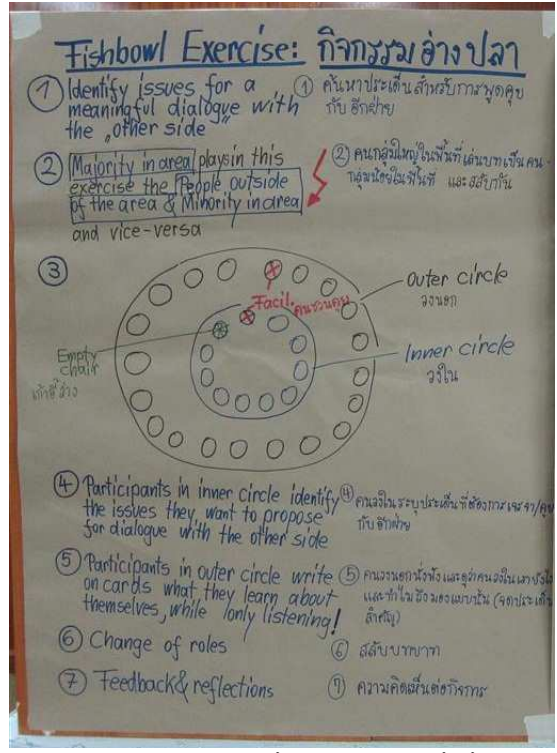 Fishbowl Exercise: กิจกรรมอ่างปลา
① Identify issues for a
meaningful dialogue with
the „other side"
① ค้นหาประเด็นสำหรับการพูดคุย
กับอีกฝ่าย
② Majority in area plays in this
exercise the People outside
of the area & Minority in area
and vice-versa
② คนกลุ่มใหญ่ในพื้นที่เล่นบทเป็นคน-
กลุ่มน้อยในพื้นที่ และสลับกัน
③
Facil. คนชวนคุย
Outer circle
วงนอก
Inner circle
วงใน
Empty
chair
เก้าอี้ว่าง
④ Participants in inner circle identify
the issues they want to propose
for dialogue with the other side
④ คนวงในระบุประเด็นที่ต้องการเจรจา/คุย
กับอีกฝ่าย
⑤ Participants in outer circle write
on cards what they learn about
themselves, while only listening!
⑤ คนวงนอกนั่งฟังและดูว่าคนวงใน
และทำไมถึงมองแบบนั้น (จดประเด็น
สำคัญ)
⑥ Change of roles
⑥ สลับบทบาท
⑦ Feedback & reflections
⑦ ความคิดเห็นต่อกิจการ